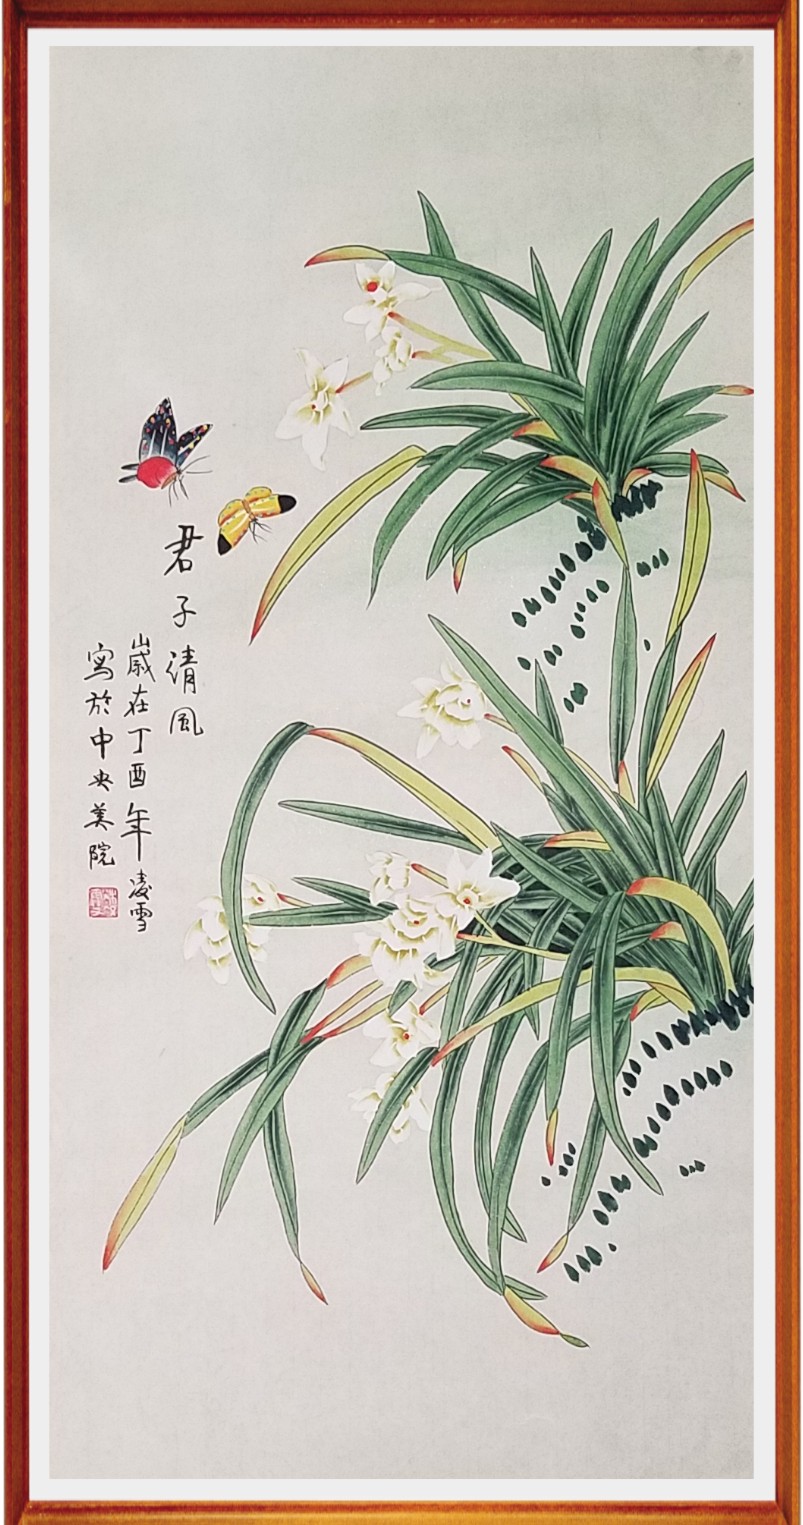 君子清风
岁在丁酉年凌雪
寫於中央美院